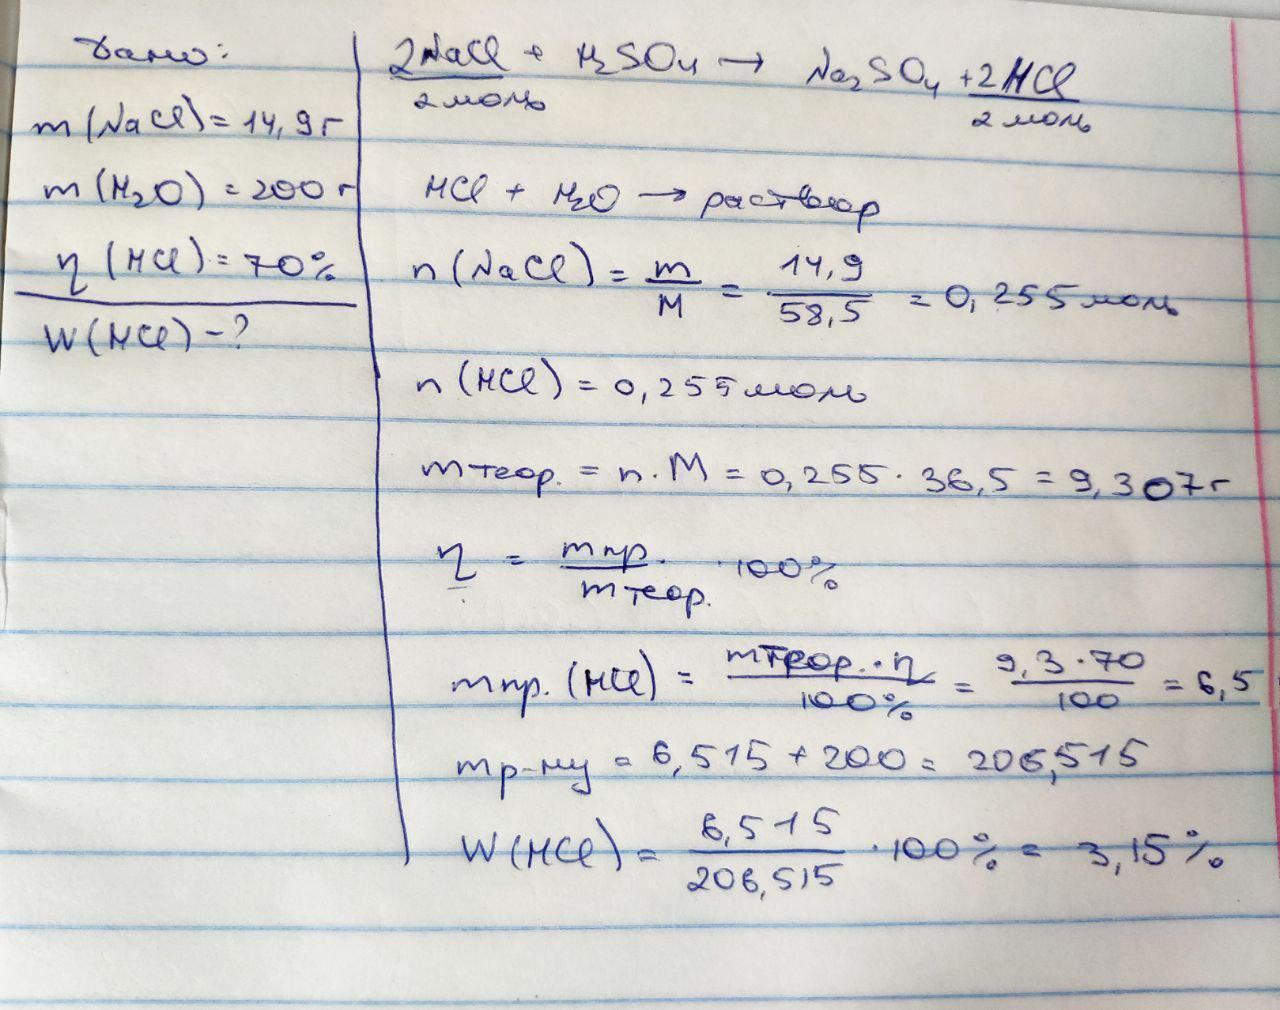 Дано:
m(NaCl)=14,9г
m(H₂O)=200г
η(HCl)=70%
W(HCl)-?
2NaCl + H₂SO₄ → Na₂SO₄ + 2HCl
2 моль 2 моль
HCl + H₂O → раствор
n(NaCl) = m/M = 14,9/58,5 = 0,255 моль
n(HCl) = 0,255 моль
mтеор. = n·M = 0,255·36,5 = 9,307г
η = mпр./mтеор. ·100%
mпр.(HCl) = mтеор.·η/100% = 9,3·70/100 = 6,5
mр-ну = 6,515+200 = 206,515
W(HCl) = 6,515/206,515 ·100% = 3,15%